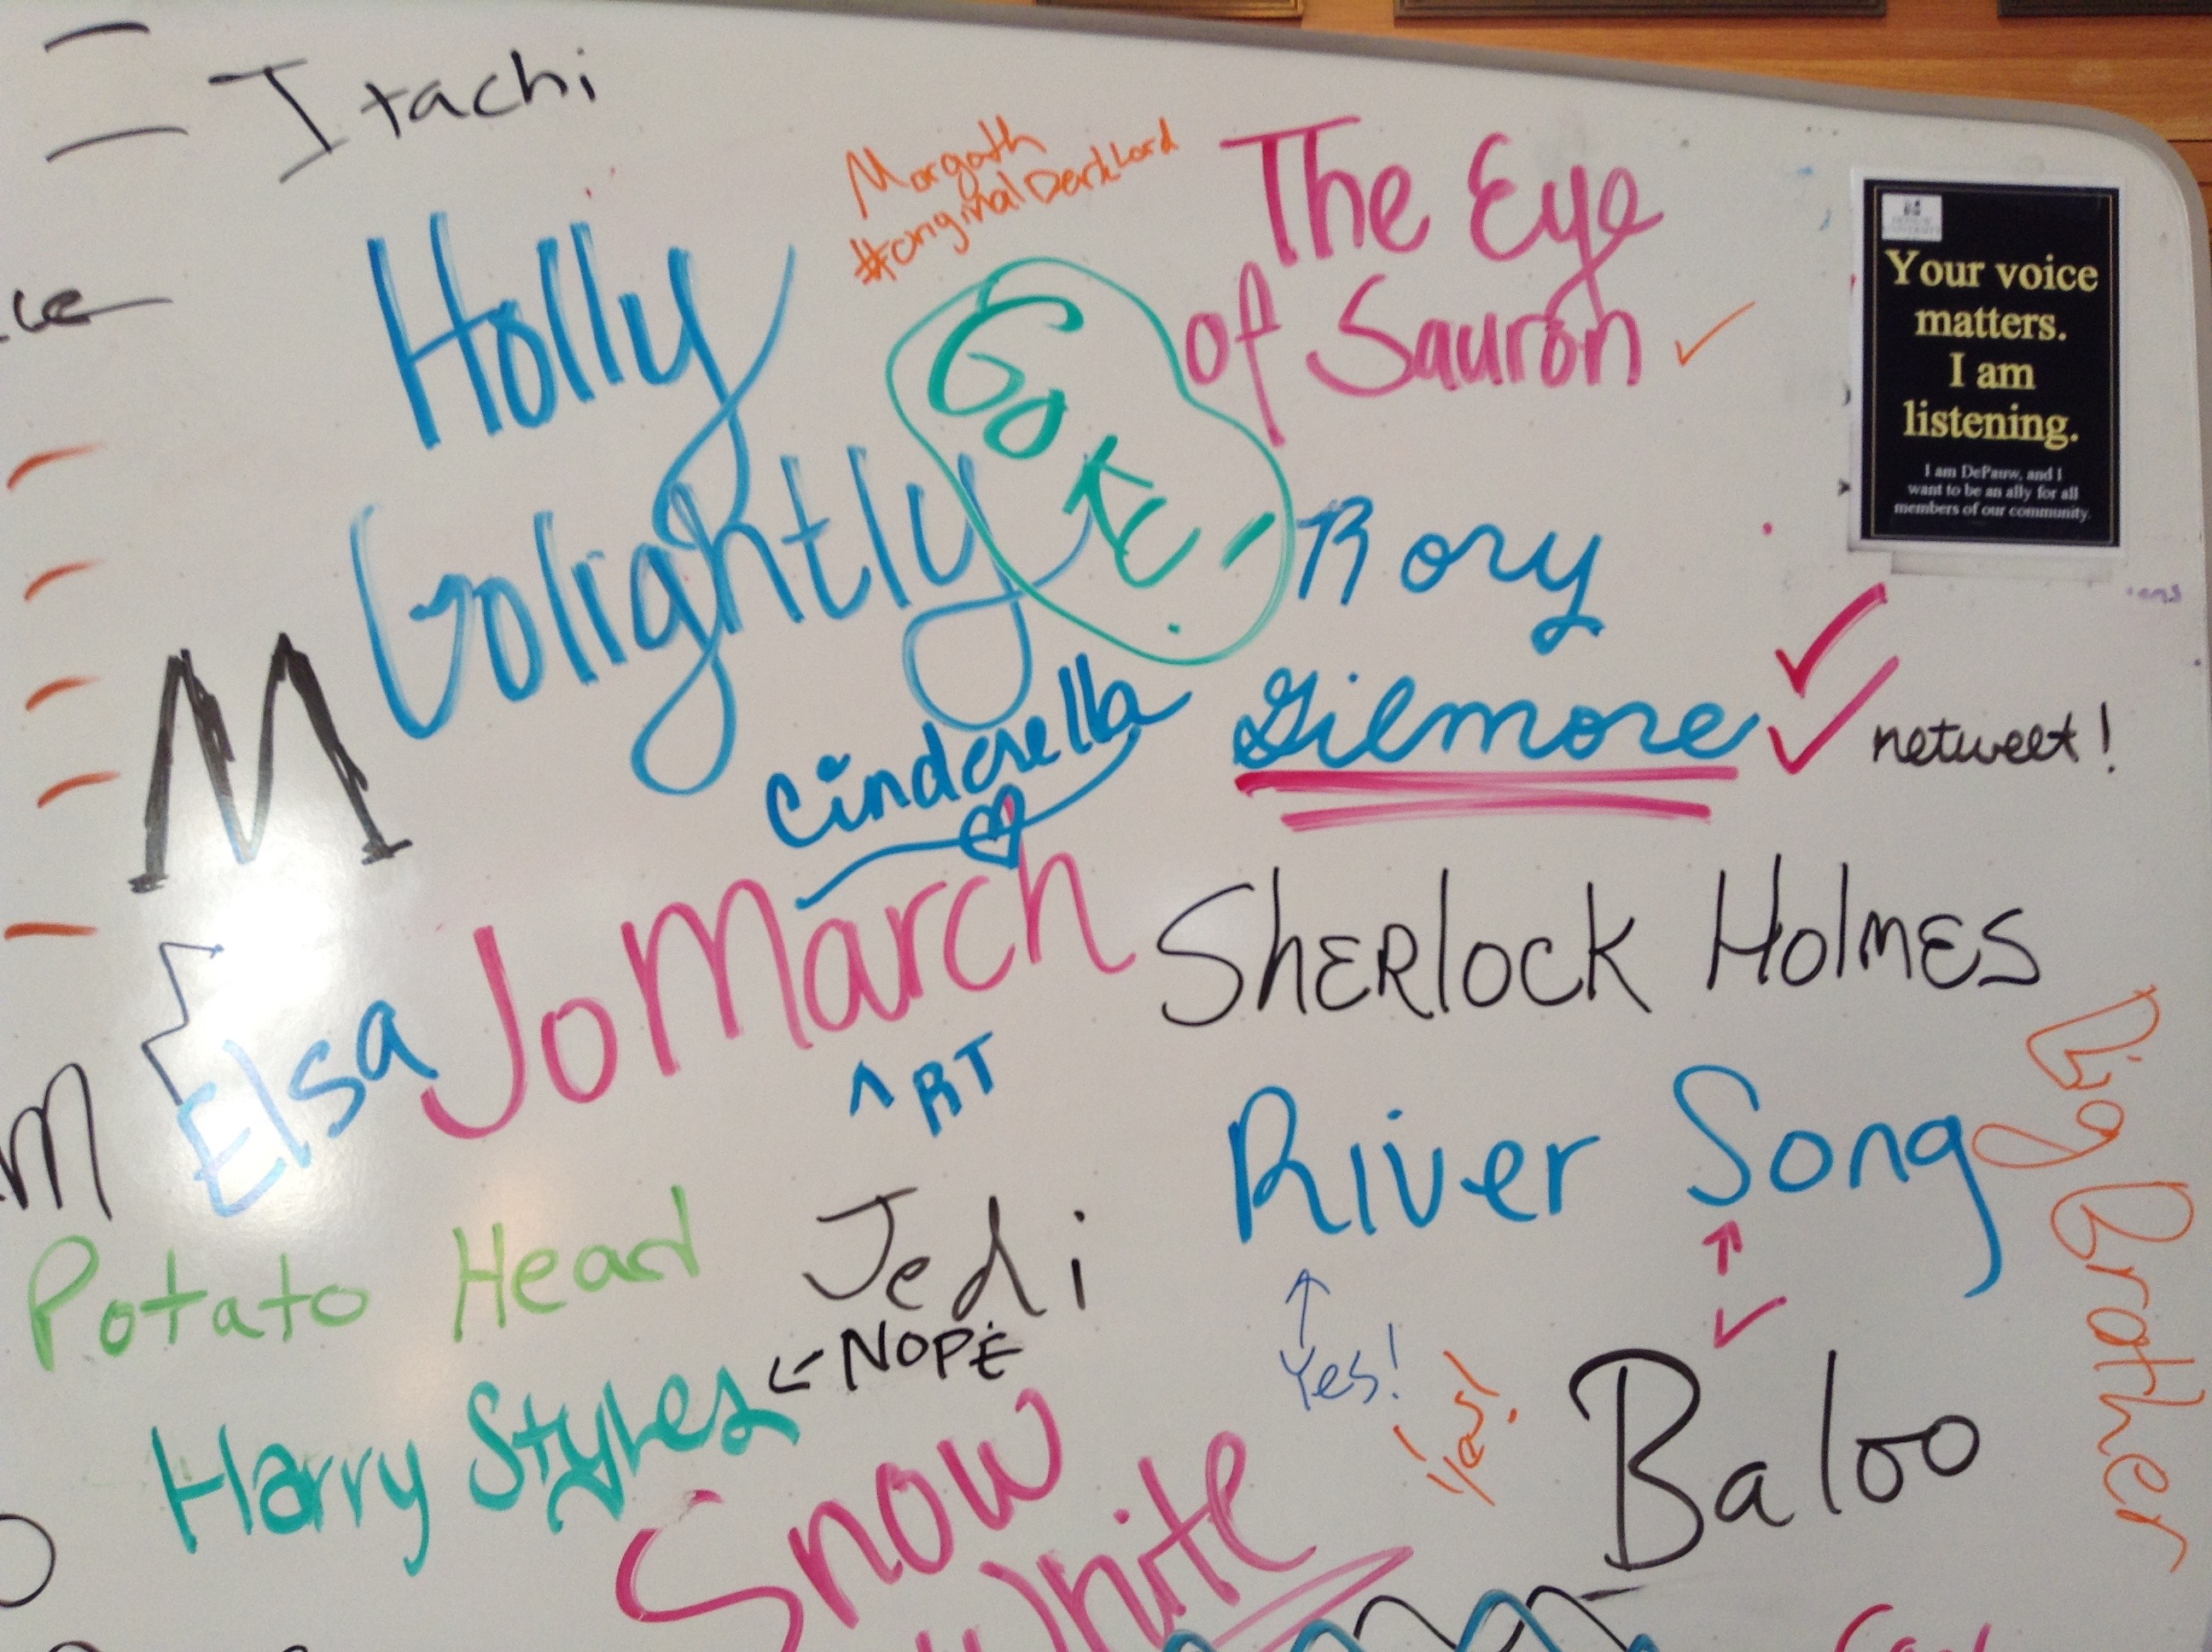 Itachi
Morgoth
#originalDarkLord
The Eye
of Sauron
Holly
Golightly
Your voice
matters.
I am
listening.
I am DePauw, and I
want to be an ally for all
members of our community.
Rory
Gilmore
netweet!
M
Cinderella
Jo March
Sherlock Holmes
Elsa
^ RT
River Song
Big Brother
Potato Head
Jedi
← NOPE
Yes!
Yes!
Harry Styles
Baloo
Snow
White